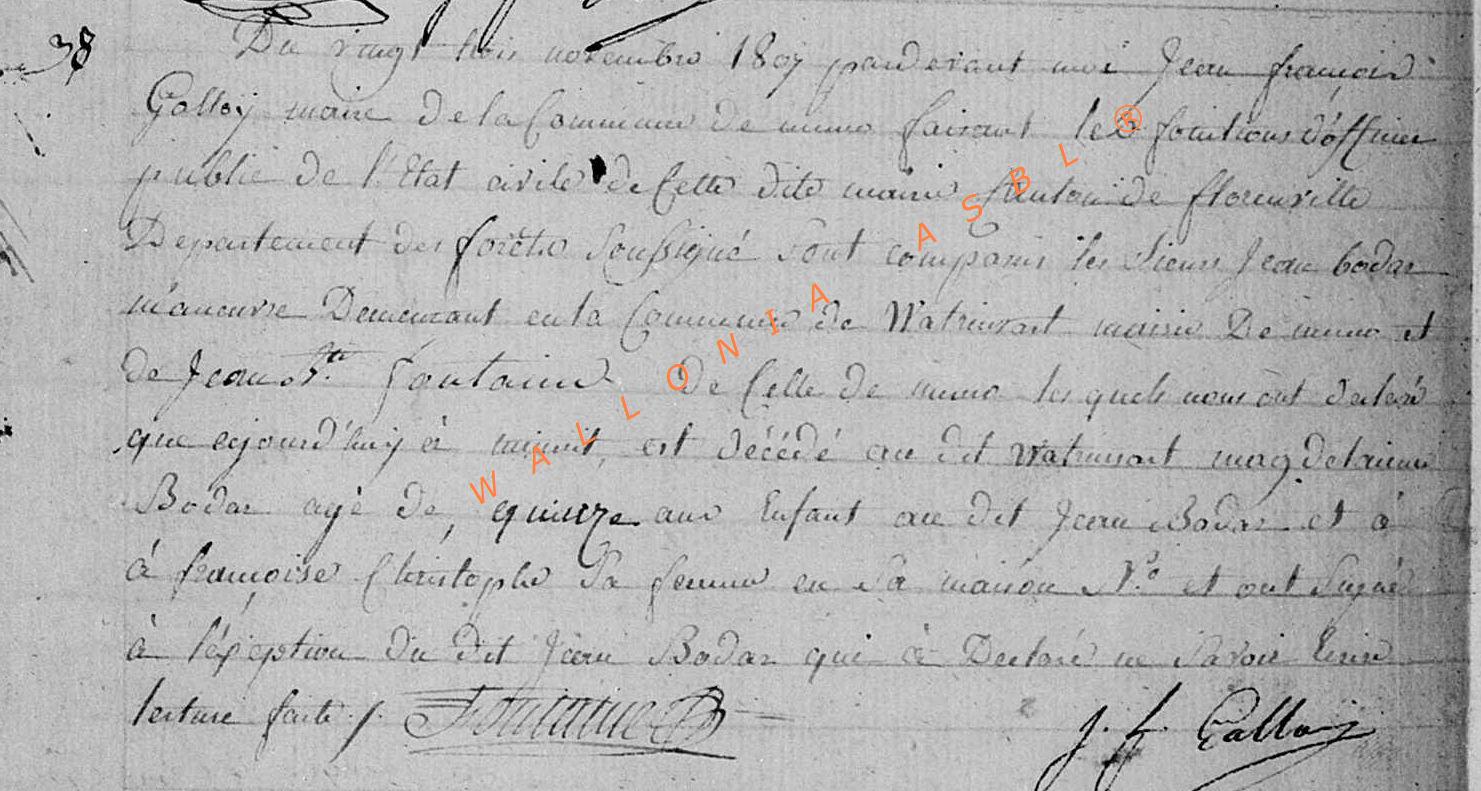 38
Du vingt trois novembre 1807 pardevant moi Jean françois
Galloy maire de la Commune de muno faisant les fonctions d'officier
public de l'Etat civile de Cette dite mairie Canton de florenville
Departement des forêts Soussigné Sont comparus les Sieurs Jean Bodar
maneuvre Demeurant en la Commune de Watrinsart mairie De muno et
de Jean Bte fontaine de Celle de muno les quels nous ont declaré
que aujourd'huy à minuit, est décédé au dit Watrinsart magdelaine
Bodar agé de quinze ans Enfant au dit Jean Bodar et à
à françoise Christophe Sa femme en Sa maison N.o et ont Signé
à l'éxception du dit Jean Bodar qui à Declaré ne Savoir Ecrire
lecture faite /. fontaine JB
j. f. Galloy
WALLONIA ASBL ®